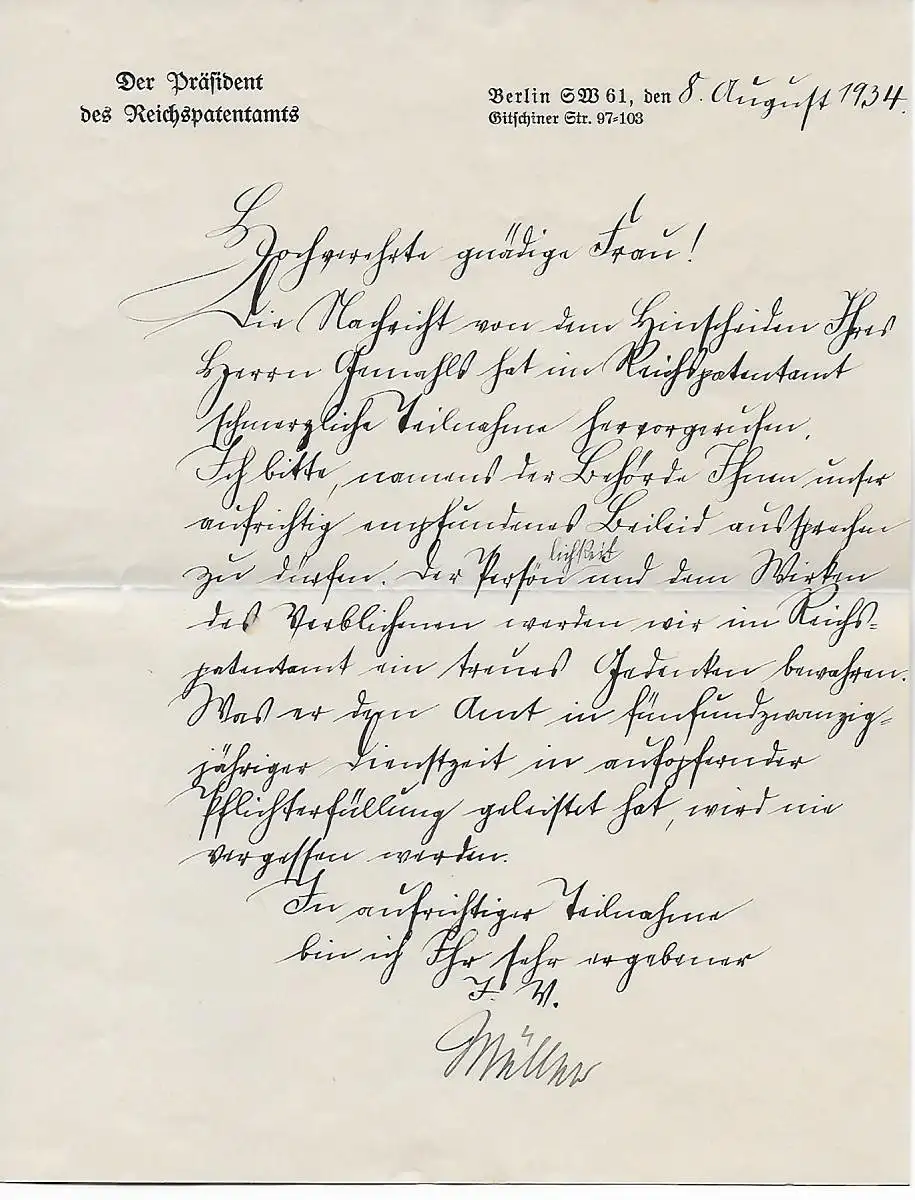 Der Präsident
des Reichspatentamts
Berlin SW 61, den 8. August 1934.
Gitschiner Str. 97-103
Hochverehrte gnädige Frau!
Die Nachricht von dem Hinscheiden Ihres
Herrn Gemahls hat im Reichspatentamt
schmerzliche Teilnahme hervorgerufen.
Ich bitte, namens der Behörde Ihnen unser
aufrichtig empfundenes Beileid aussprechen
zu dürfen. Der Persönlichkeit und dem Wirken
des Verblichenen werden wir im Reichs-
patentamt ein treues Gedenken bewahren.
Was er dem Amt in fünfundzwanzig-
jähriger Dienstzeit in aufopfernder
Pflichterfüllung geleistet hat, wird nie
vergessen werden.
In aufrichtiger Teilnahme
bin ich Ihr sehr ergebener
I. V.
Müller